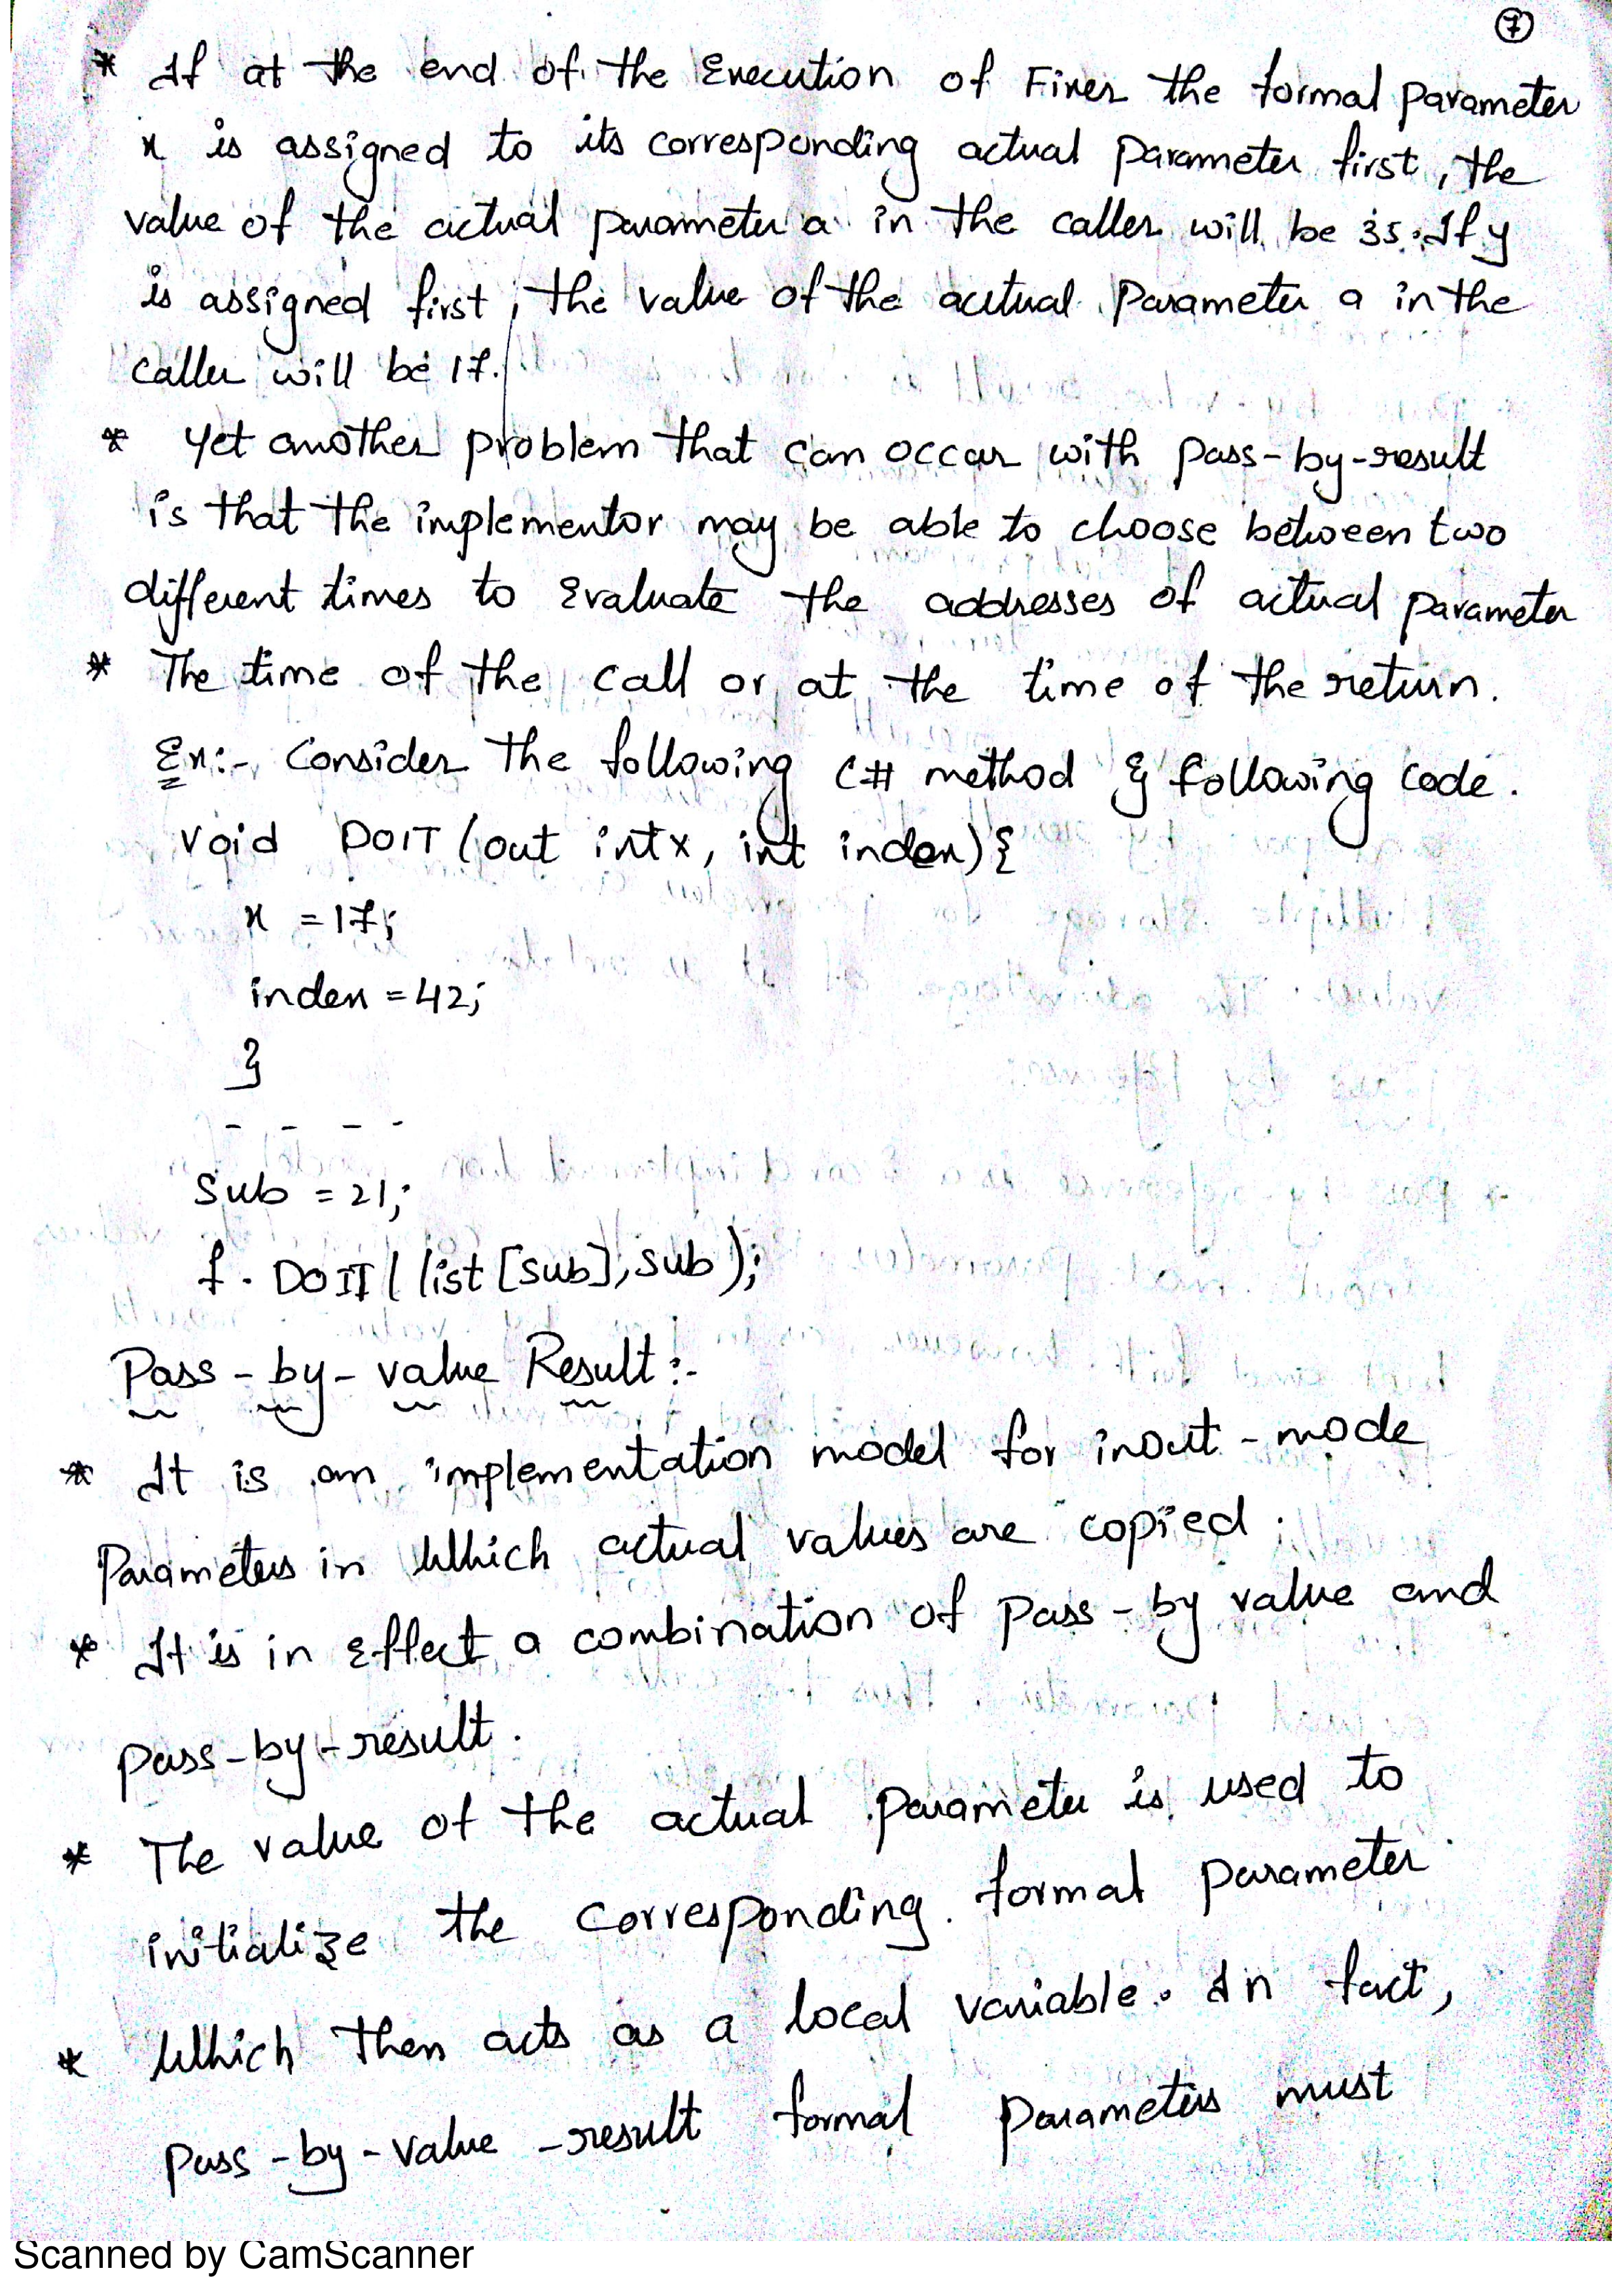 7
* If at the end of the Execution of Fixer the formal parameter
x is assigned to its corresponding actual parameter first, the
value of the actual parameter a in the caller will be 35. If y
is assigned first, the value of the acutual Parameter a in the
caller will be 17.
* Yet another problem that can occar with pass-by-result
is that the implementor may be able to choose between two
different times to Evaluate the addresses of actual parameter
* The time of the call or at the time of the return.
Ex:- Consider the following C# method & following code.
void DOIT (out intx, int index){
x = 17;
index = 42;
}
- - - -
Sub = 21;
f. DOIT( list [sub], sub );
Pass - by - value Result :-
* It is an implementation model for inout - mode
Parameters in Which actual values are copied.
* It is in Effect a combination of pass - by value and
pass-by-result.
* The value of the actual parameter is used to
initialize the corresponding formal parameter
* Which then acts as a local variable. In fact,
pass - by - value -result formal parameters must
Scanned by CamScanner